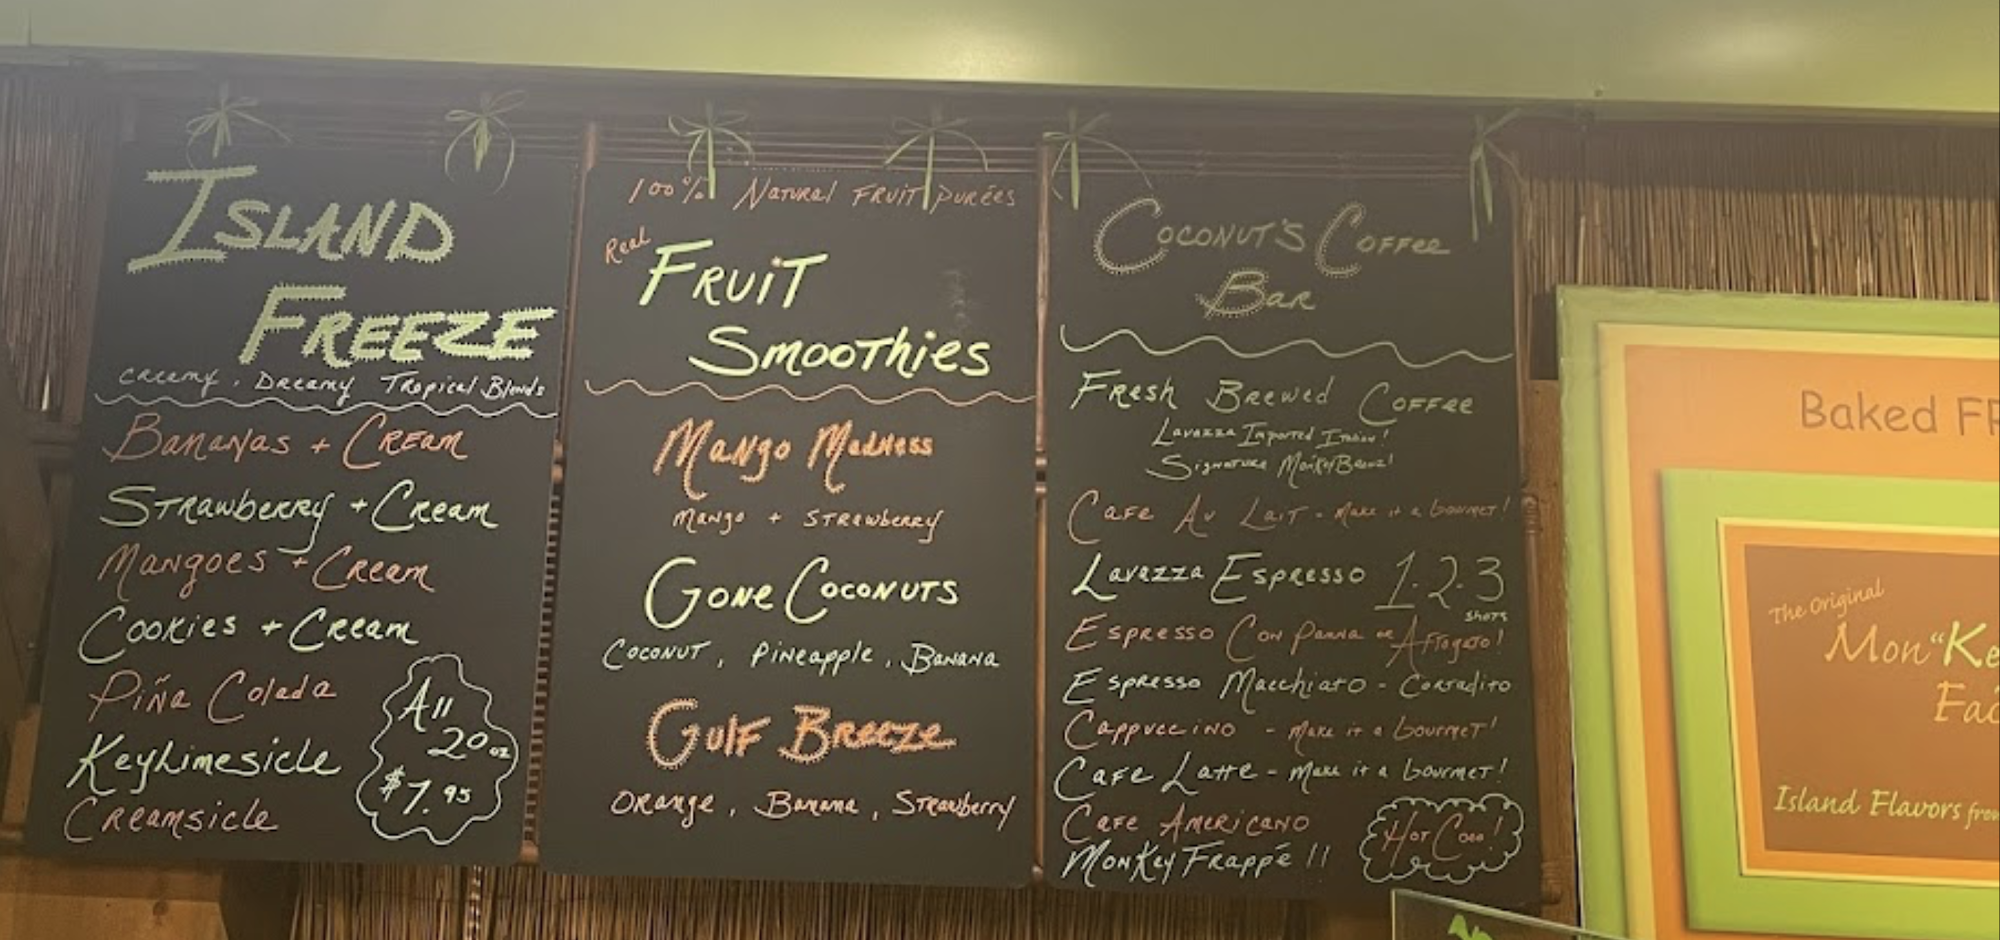 ISLAND
FREEZE
Creamy, Dreamy Tropical Blends
Bananas + Cream
Strawberry + Cream
Mangoes + Cream
Cookies + Cream
Piña Colada
KeyLimesicle
Creamsicle
All
20 oz
$7.95
100% Natural Fruit purées
Real
Fruit
Smoothies
Mango Madness
Mango + Strawberry
Gone Coconuts
Coconut, Pineapple, Banana
Gulf Breeze
Orange, Banana, Strawberry
Coconut's Coffee
Bar
Fresh Brewed Coffee
Lavazza Imported Italian!
Signature
Cafe Au Lait - Make it a Gourmet!
Lavazza Espresso 1.2.3
shots
Espresso Con Panna or Affogato!
Espresso Macchiato - Cortadito
Cappuccino - Make it a Gourmet!
Cafe Latte - Make it a Gourmet!
Cafe Americano
Monkey Frappé !!
Hot Coco!
Baked
The Original
Mon"Ke
Island Flavors